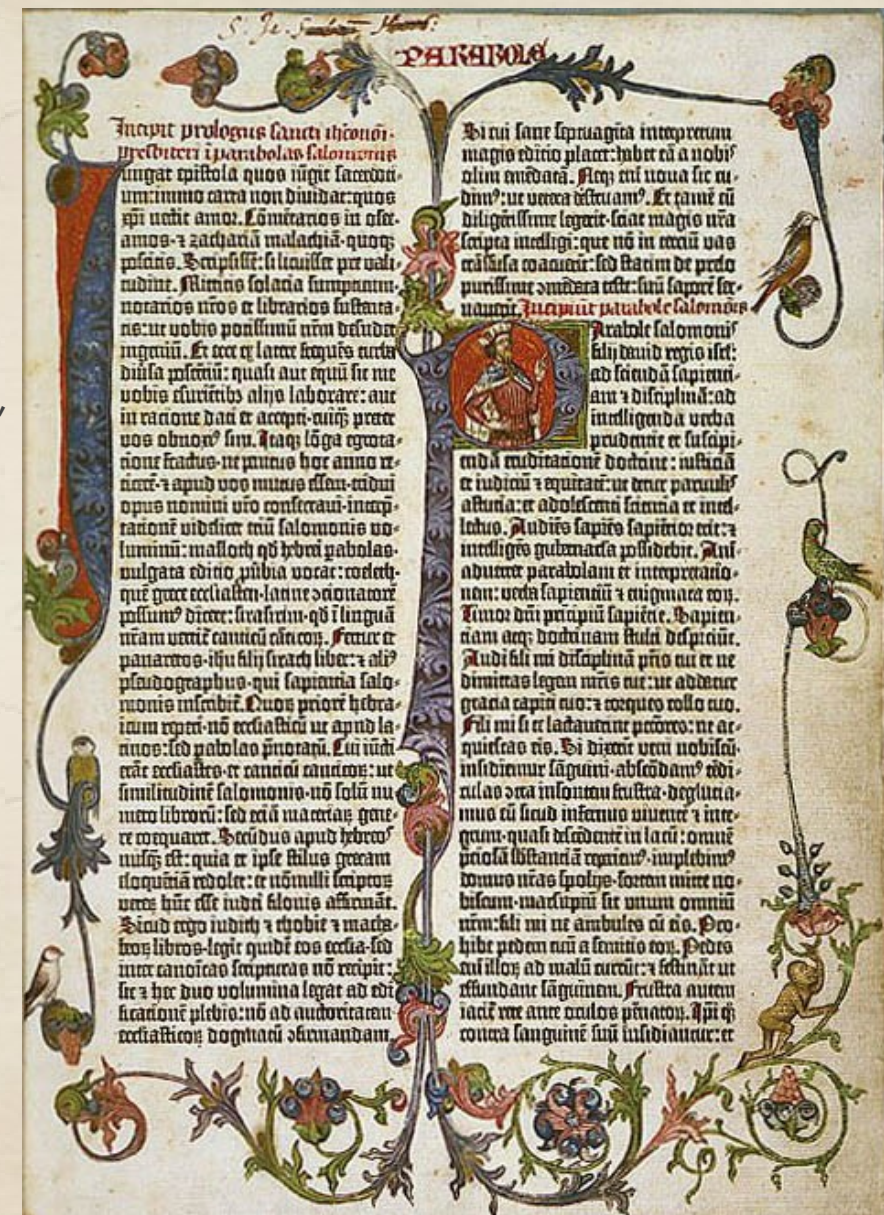 PARABOLE
Incipit prologus sancti iheronimi
presbiteri i parabolas salomonis
iungat epistola quos iūgit sacerdoti-
um: immo carta non diuidat: quos
xpi nectit amor. Cōmētarios in osee.
amos. ⁊ zachariā malachiā. quoqȝ
poscitis. Scripsissē: si licuisset pre vali-
tudine. Mittitis solacia sumptuum.
notarios nr̄os et librarios sustenta-
tis: ut vobis potissimū nr̄m desudet
ingeniū. Et ecce ex latere frequēs turba
diūsa poscētiū: quasi aut equū sit me
vobis esuriētibs alijs laborare: aut
in racione dati et accepti. cuiqȝ preter
vos obnoxiꝰ sim. Itaqȝ lōga egrota-
tione fractus. ne penitus hoc anno re-
ticerē. ⁊ apud vos mutus essem. tridui
opus nomini vr̄o consecraui. interp̄-
tationē videlicet triū salomonis vo-
luminū: masloth qd̄ hebrei ꝑabolas.
vulgata editio ꝓūbia vocat: coeleth.
quē grece ecclesiasten. latine ↄcionatorē
possumꝰ dicere: sirasirim. qd̄ i linguā
nr̄am vertit̄ canticū cāticoꝝ. Fertur et
panaretos. ihu filij sirach liber: ⁊ aliꝰ
pseudographus. qui sapientia salo-
monis inscribit̄. Quoꝝ priorē hebra-
icum reperi. nō ecclesiasticū ut apud la-
tinos: sed ꝑabolas p̄notatū. Cui iūcti
erāt ecclesiastes. et canticū canticoꝝ: ut
similitudinē salomonis. nō solū nu-
mero librorū: sed etiā materiaꝝ gene-
re coequaret. Secūdus apud hebreos
nusqȝ est: quia et ipse stilus grecam
eloquētiā redolet: et nōnulli scriptoꝝ
veteꝝ hūc esse iudei filonis affirmāt.
Sicud ergo iudith ⁊ thobie ⁊ macha-
beoꝝ libros. legit quidē eos ecclesia. sed
inter canonicas scripturas nō recipit:
sic ⁊ hec duo volumina legat ad edi-
ficationē plebis: nō ad auctoritatem
ecclesiasticoꝝ dogmatū ↄfirmandam.
Si cui sane septuagīta interpretum
magis editio placet: habet eā a nobis
olim emēdatā. Neqȝ enī noua sic cu-
dimꝰ: ut vetera destruamꝰ. Et tamē cū
diligētissime legerit. sciat magis nr̄a
scripta intelligi: que nō in terciū vas
trāsfusa coacuerīt: sed statim de prelo
purissime ↄmēdata teste: suū saporē ser-
uauerīt. Incipiūt parabole salomōis
Parabole salomonis
filij dauid regis isrl̄:
ad sciendā sapienti-
am ⁊ disciplinā: ad
intelligenda verba
prudentie et suscipi-
endā eruditationē doctrine: iusticiā
et iudiciū ⁊ equitatē: ut detur paruulis
astutia: et adolescenti scientia et intel-
lectus. Audiēs sapiēs sapiētior erit: ⁊
intelligēs gubernacla possidebit. Ani-
aduertet parabolam et interpretatio-
nem: verba sapientiū ⁊ enigmata eoꝝ.
Timor dn̄i prīcipiū sapiētie. Sapien-
tiam atqȝ doctrinam stulti despiciūt.
Audi fili mi disciplinā pr̄is tui et ne
dimittas legem mr̄is tue: ut addatur
gracia capiti tuo: ⁊ torques collo tuo.
Fili mi si te lactauerint pctōres: ne ac-
quiescas eis. Si dixerīt veni nobiscū.
insidiemur sāguini. abscōdamꝰ tēdi-
culas ↄtra insontem frustra. deglutia-
mus eū sicud infernus viuentē ⁊ inte-
grum. quasi descēdentē in lacū: omnē
pciosā sb̄stantiā reperiemꝰ. implebimꝰ
domus nr̄as spolijs. sortem mitte no-
biscum. marsupiū sit unum omniū
nr̄m: fili mi ne ambules cū eis. Pro-
hibe pedem tuū a semitis eoꝝ. Pedes
enī illoꝝ ad malū currūt: ⁊ festināt ut
effundant sāguinem. Frustra autem
iacit̄ rete ante oculos pēnatoꝝ. Ipi qȝ
contra sanguinē suū insidiantur: et